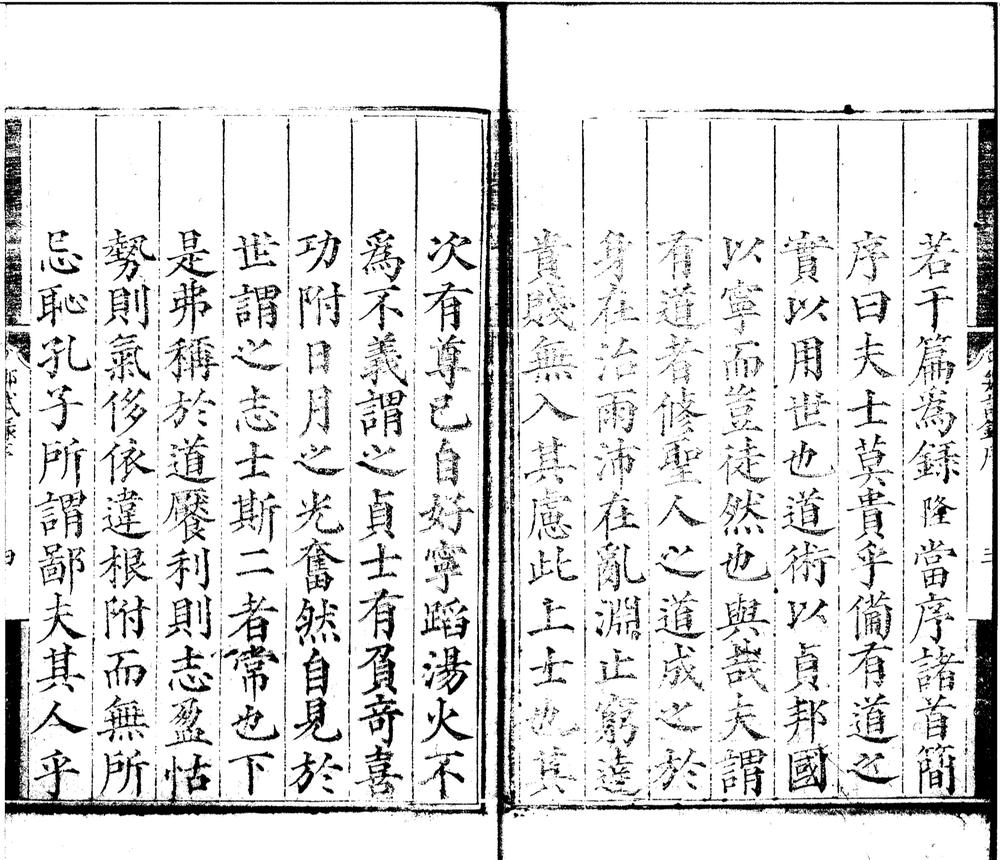 若干篇爲錄隆當序諸首簡
序曰夫士莫貴乎備有道之
實以用世也道術以貞邦國
以寧而豈徒然也與哉夫謂
有道者修聖人之道成之於
身在治雨沛在亂淵止窮達
貴賤無入其慮此上士也其
次有尊己自好寧蹈湯火不
爲不義謂之貞士有負奇喜
功附日月之光奮然自見於
世謂之志士斯二者常也下
是弗稱於道饜利則志盈怙
勢則氣侈依違根附而無所
忌恥孔子所謂鄙夫其人乎
四